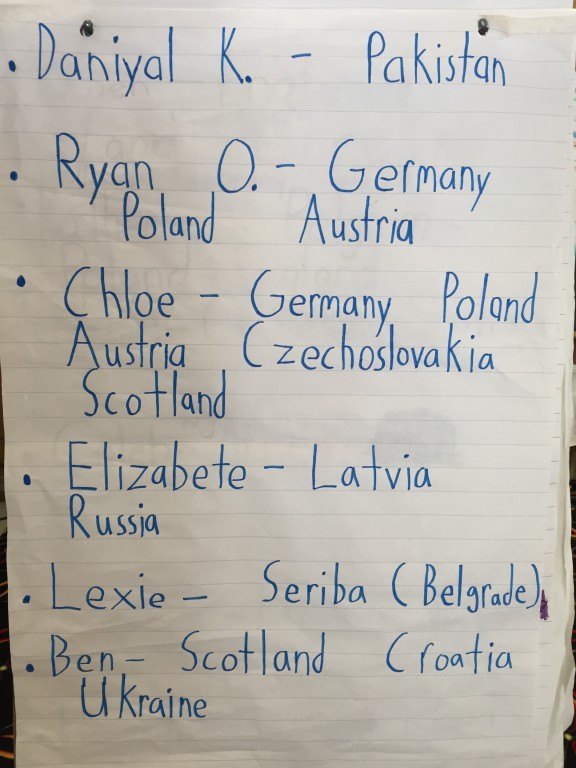 • Daniyal K. - Pakistan
• Ryan O. - Germany
Poland Austria
• Chloe - Germany Poland
Austria Czechoslovakia
Scotland
• Elizabete - Latvia
Russia
• Lexie - Seriba (Belgrade)
• Ben - Scotland Croatia
Ukraine